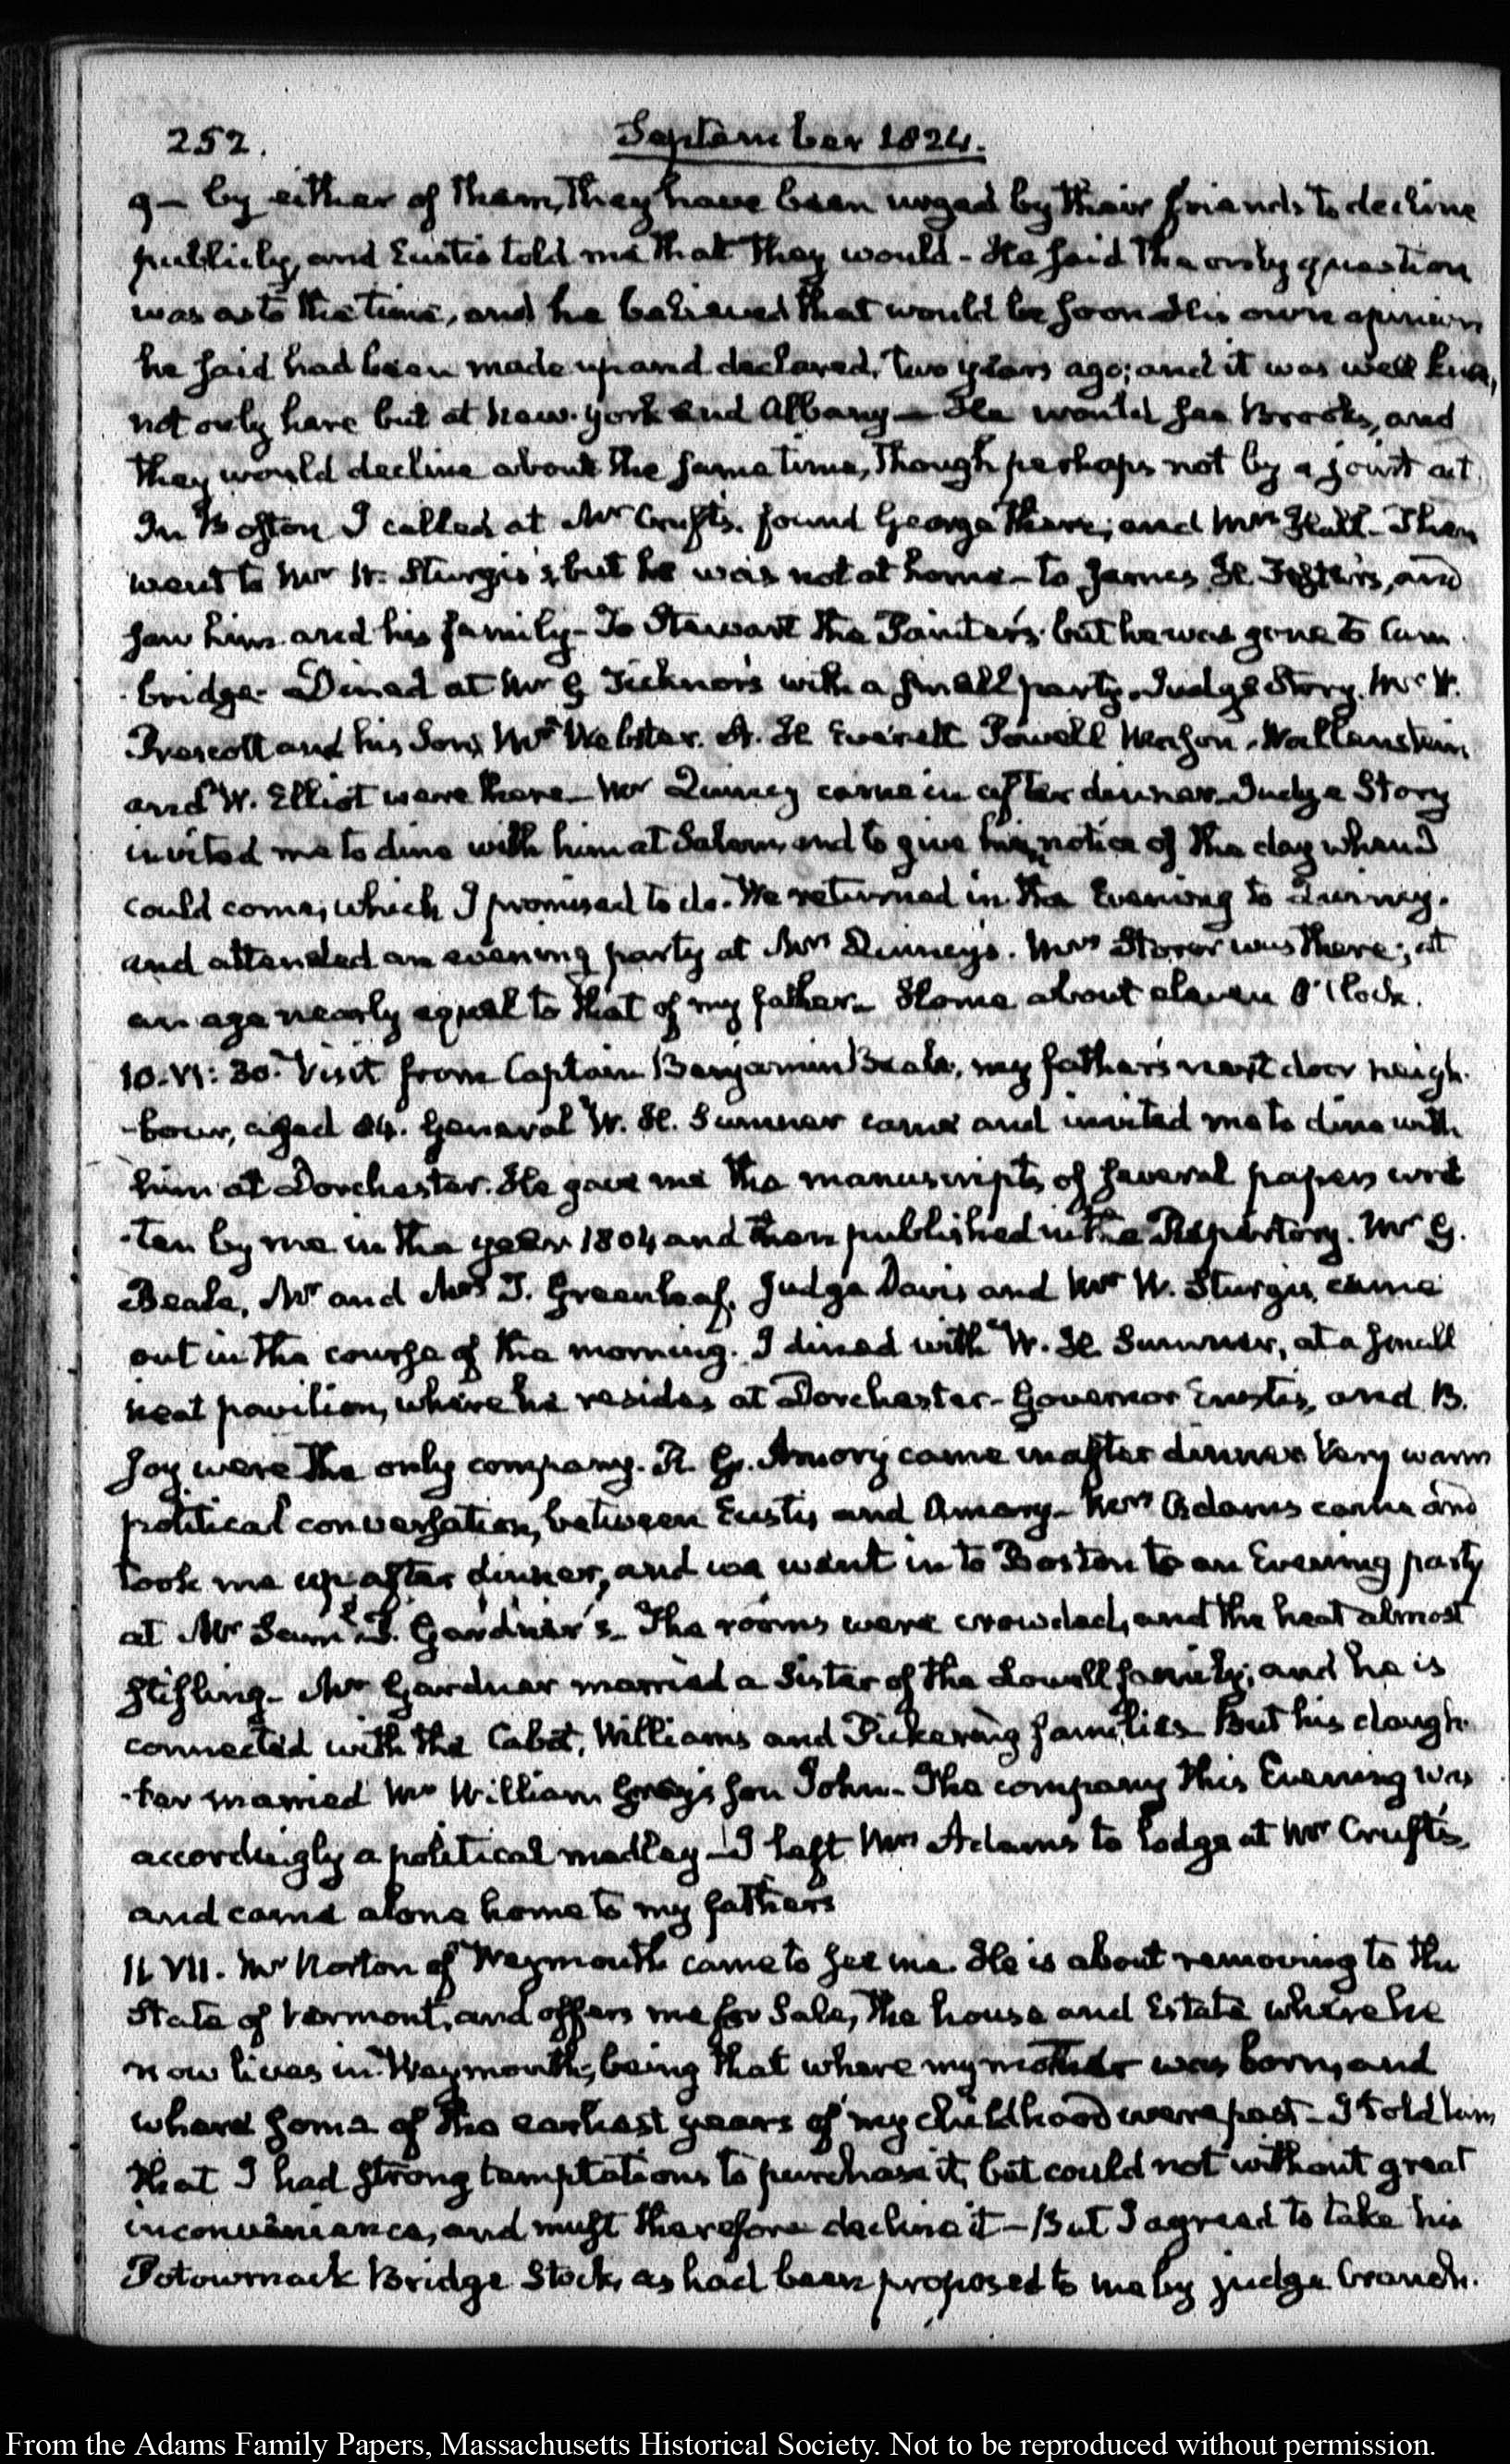 252.
September 1824.
9— by either of them, they have been urged by their friends to decline
publicly, and Eustis told me that they would - He said the only question
was as to the time, and he believed that would be soon. His own opinion
he said had been made up and declared, two years ago; and it was well
not only here but at New-York and Albany — He would see Brooks, and
they would decline about the same time, though perhaps not by a joint act.
In Boston I called at Mr Cruft's. found George there; and Mrs Hull - Then
went to Mr W. Sturgis's, but he was not at home - to James H. Foster's, and
saw him and his family - To Stewart the Painter's. but he was gone to Cam
bridge. Dined at Mr G Ticknor's with a small party. Judge Story. Mr W.
Prescott and his Son, Mr Webster. A. H Everett Powell Mason, Wallenstein
and W. Elliot were there - Mr Quincy came in after dinner. Judge Story
invited me to dine with him at Salem, and to give him notice of the day when I
could come, which I promised to do. We returned in the Evening to Quincy.
and attended an evening party at Mrs Quincy's. Mrs Storer was there; at
an age nearly equal to that of my father - Home about eleven O'Clock.
10. VI: 30. Visit from Captain Benjamin Beale, my father's next door neigh-
-bour, aged 84. General W. H. Sumner came and invited me to dine with
him at Dorchester. He gave me the manuscripts of several papers writ
-ten by me in the year 1804 and then published in the Repertory. Mr G.
Beale, Mr and Mrs T. Greenleaf, Judge Davis and Mr W. Sturgis, came
out in the course of the morning. I dined with W. H Sumner, at a small
neat pavilion, where he resides at Dorchester - Governor Eustis, and B.
Joy were the only company. R. G. Amory came in after dinner Very warm
political conversation, between Eustis and Amory - Mrs Adams came and
took me up after dinner, and we went in to Boston to an Evening party
at Mr Saml. P. Gardner's - The rooms were crowded, and the heat almost
stifling - Mr Gardner married a Sister of the Lowell family; and he is
connected with the Cabot, Williams and Pickering families - But his daugh-
-ter married Mr William Gray's son John - The company this Evening was
accordingly a political medley - I left Mrs Adams to lodge at Mr Cruft's,
and came alone home to my father's
11. VII. Mr Norton of Weymouth came to see me. He is about removing to the
State of Vermont, and offers me for Sale, the house and Estate where he
now lives in Weymouth; being that where my mother was born, and
where some of the earliest years of my childhood were past - I told him
that I had strong temptations to purchase it, but could not without great
inconvenience, and must therefore decline it - But I agreed to take his
Potowmack Bridge Stock, as had been proposed to me by judge Cranch.
From the Adams Family Papers, Massachusetts Historical Society. Not to be reproduced without permission.